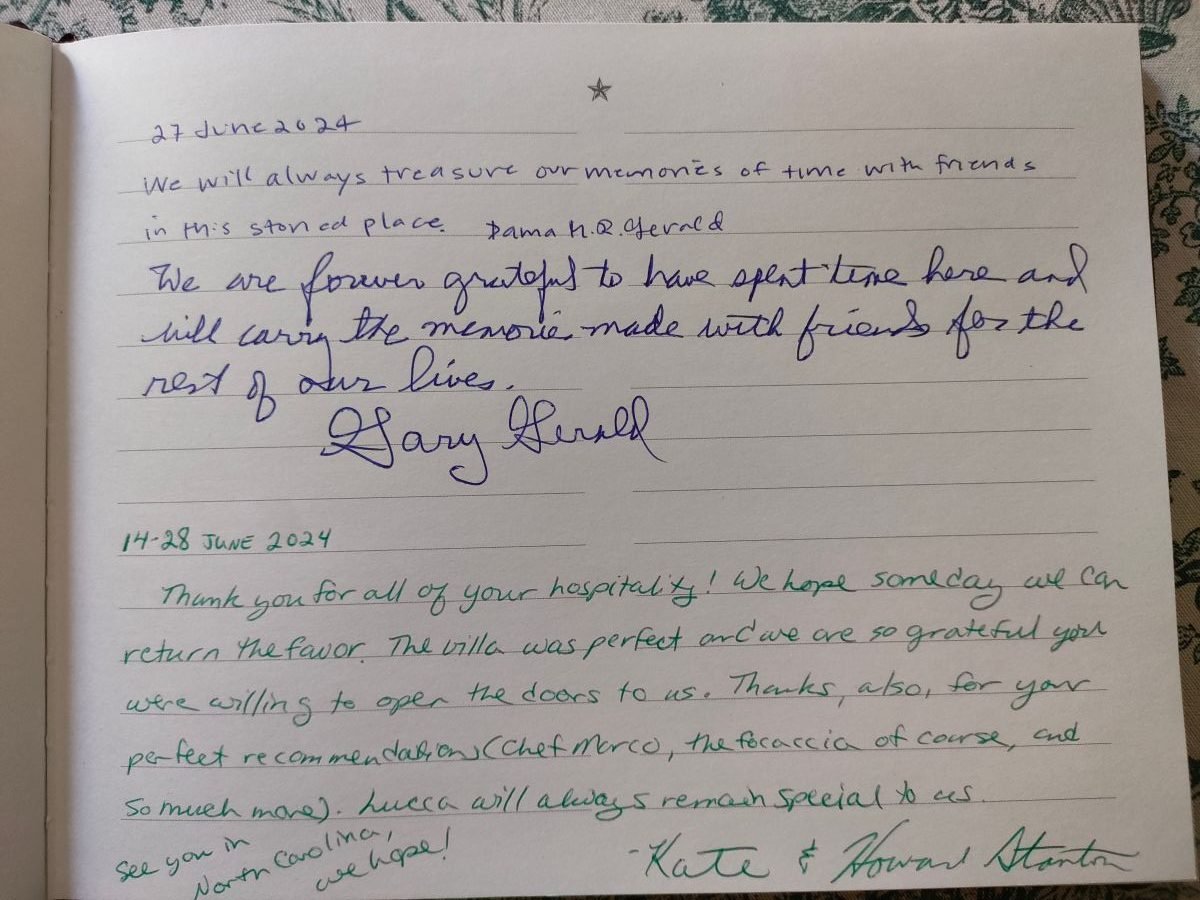 27 June 2024
We will always treasure our memories of time with friends
in this storied place. Dama H.R. Gerald
We are forever grateful to have spent time here and
will carry the memories made with friends for the
rest of our lives.
Gary Gerald
14-28 JUNE 2024
Thank you for all of your hospitality! We hope someday we can
return the favor. The villa was perfect and we are so grateful you
were willing to open the doors to us. Thanks, also, for your
perfect recommendations (Chef Marco, the focaccia of course, and
so much more). Lucca will always remain special to us.
See you in
North Carolina,
we hope!
-Kate & Howard Stanton